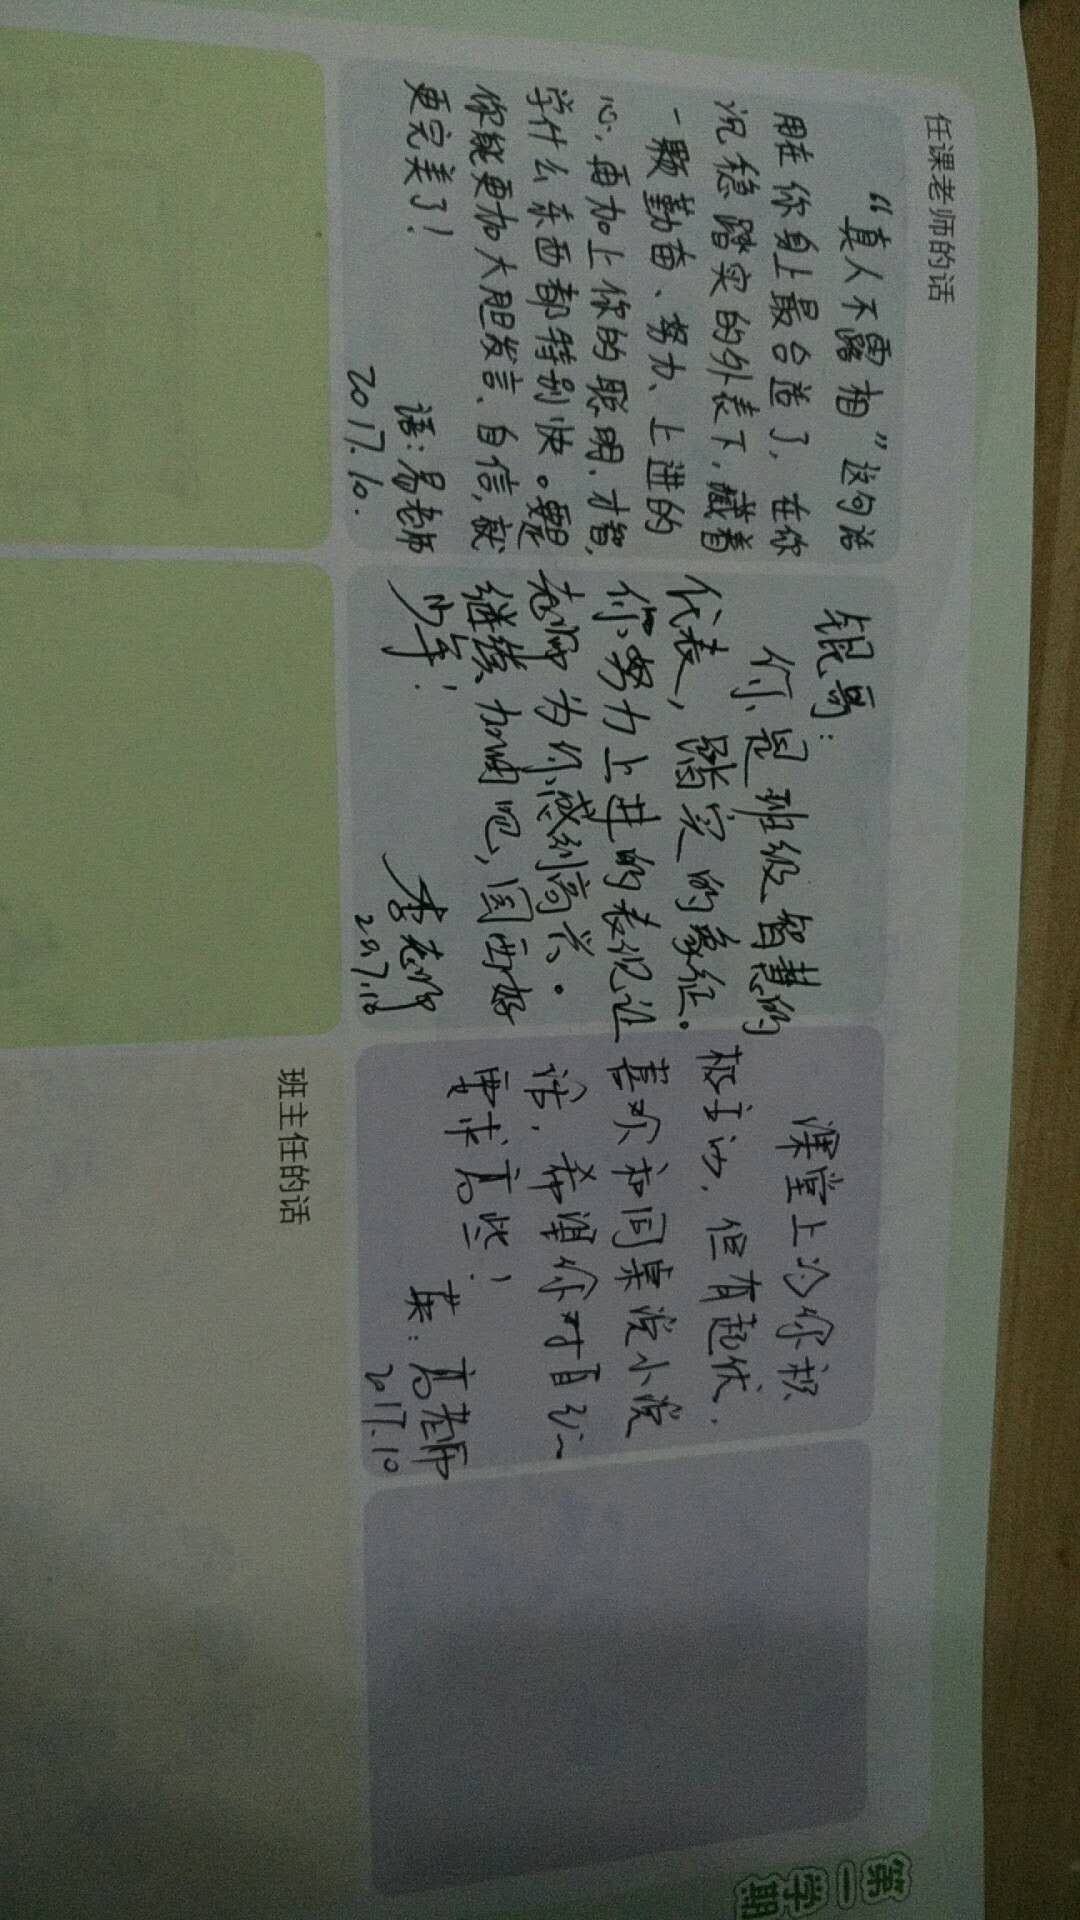 任课老师的话
“真人不露相”这句话
用在你身上最合适了，在你
沉稳踏实的外表下，藏着
一颗勤奋、努力、上进的
心，再加上你的聪明、才智，
学什么东西都特别快。要是
你能更加大胆发言、自信，就
更完美了！
语：易老师
2017.10.
锟哥：
你是班级智慧的
代表，踏实的象征。
你努力上进的表现让
老师为你感到高兴。
继续加油吧，
少年！
李老师
2017.10
课堂上的你积
极主动，但有起伏，
喜欢和同桌说小说
话，希望你对自己
要求高些！
英：高老师
2017.10
班主任的话
第一学期